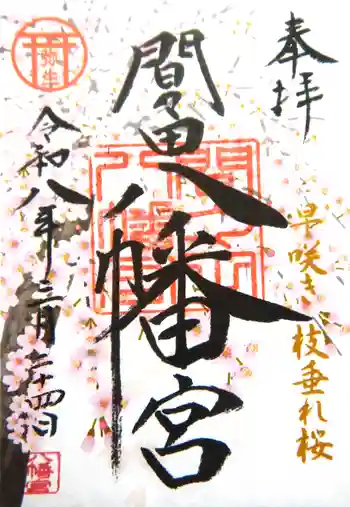 奉拝
早咲き
枝垂れ桜
間々田八幡宮
弥生
令和八年三月二十四日
八幡宮